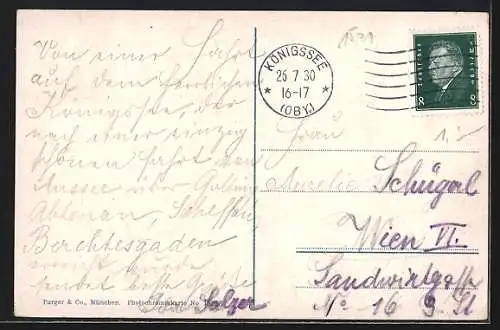 Von einer Fahrt
auf dem herrlichen
Königssee, der
nach einer einzig
schönen Fahrt von
Aussee über Golling
Abtenau, Scheffau,
Berchtesgaden
erreicht wurde
sendet beste Grüße
Salzer
Purger & Co., München. Photochromiekarte No.
1531
KÖNIGSSEE
25 7 30
16-17
(OBY.)
DEUTSCHES REICH
8 8
1,-
Aurelia Schügerl
Wien VI.
Sandwirtgasse
No 16 3. St